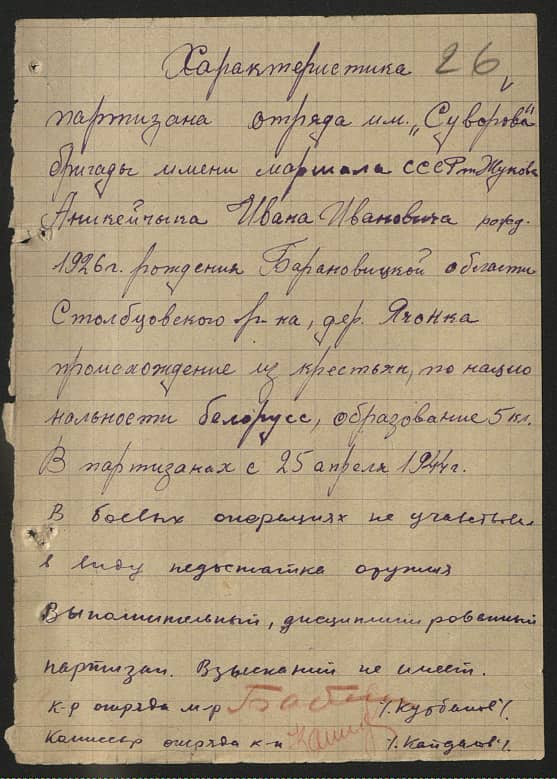 Характеристика 26
партизана отряда им. „Суворова"
бригады имени маршала СССР т Жукова
Аникейчыка Ивана Ивановича рожд.
1926г. рождения Барановицкой области
Столбцовского р-на, дер. Ячонка
происхождение из крестьян, по нацио
нальности белорусс, образование 5 кл.
В партизанах с 25 апреля 1944г.
В боевых операциях не участвовал
в виду недостатка оружия
Выполнительный, дисциплинированный
партизан. Взысканий не имеет.
К-р отряда м-р /Курбанов/.
Комиссар отряда к-н /Кайдалов/.